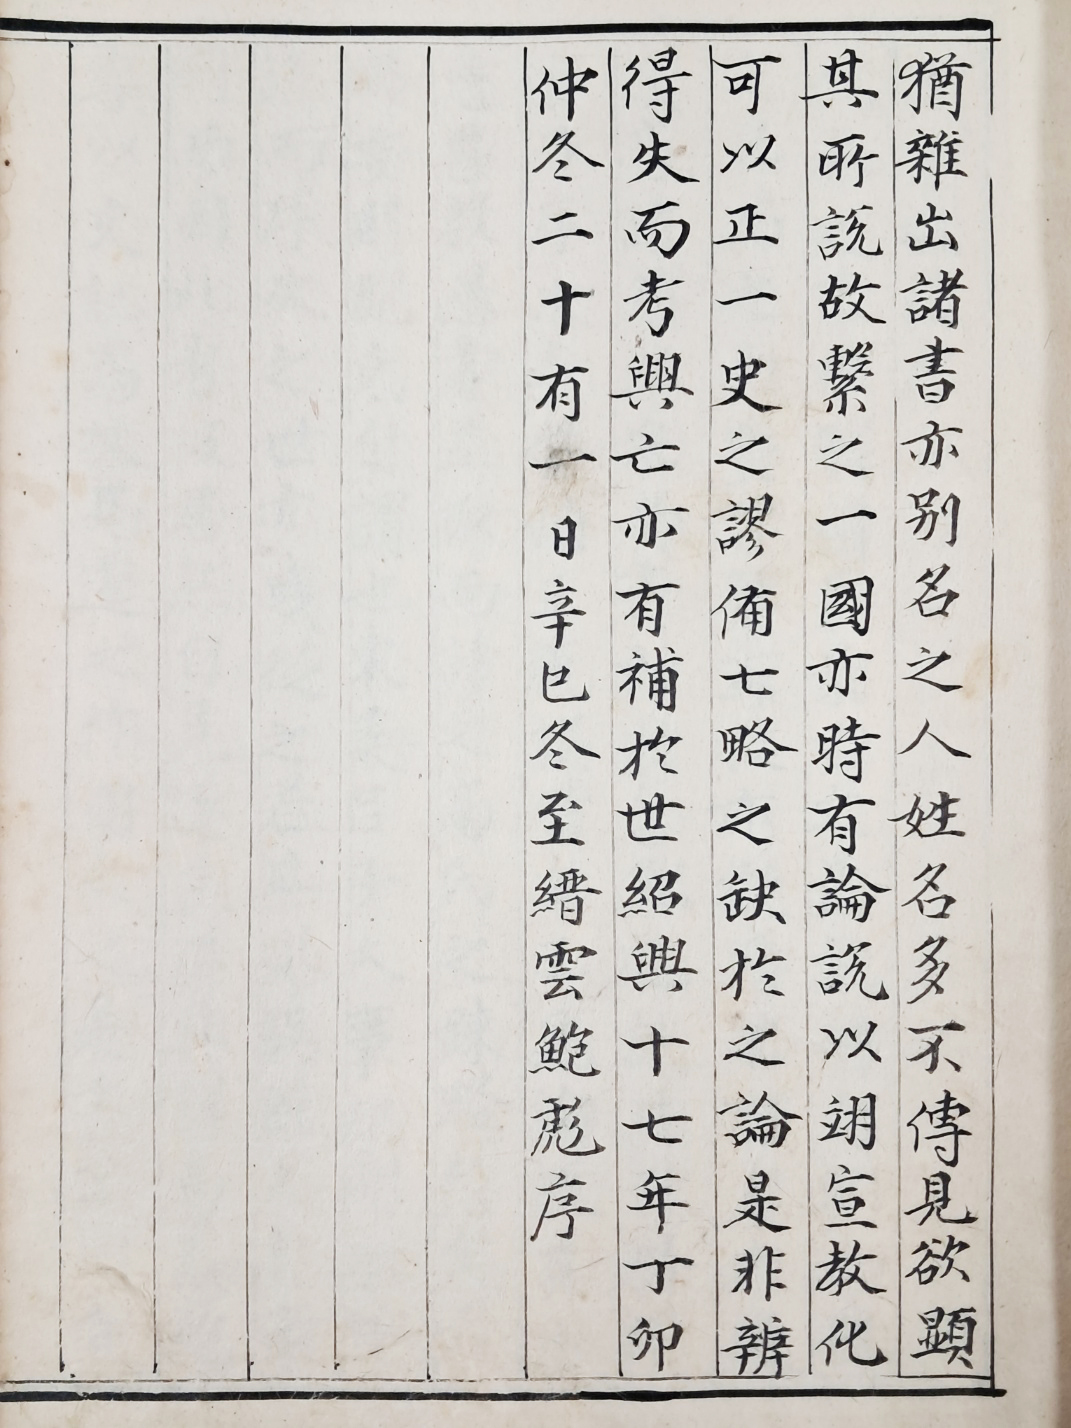 猶雜出諸書亦別名之人姓名多不傳見欲顯
其所說故繫之一國亦時有論說以翊宣教化
可以正一史之謬備七略之缺於之論是非辨
得失而考興亡亦有補於世紹興十七年丁卯
仲冬二十有一日辛巳冬至縉雲鮑彪序